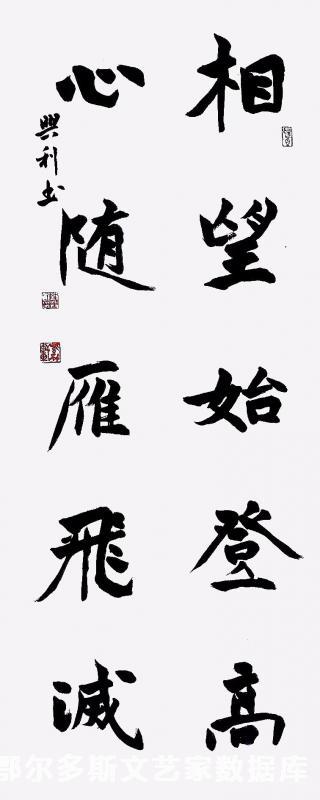 相望始登高
心随雁飛滅
興利书
鄂尔多斯文艺家数据库